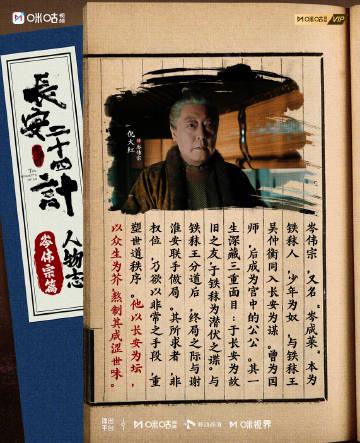 咪咕视频
咪咕视频 VIP
長安二十四計
人物志
岑伟宗篇
倪大红
岑伟宗
岑伟宗，又名，岑成莱。本为
铁秣人，少年为奴，与铁秣王
吴仲衡同入长安为谋。曾为国
师，后成为宫中的公公。其一
生深藏三重面目：于长安为故
旧之友，于铁秣为潜伏之谍。与
铁秣王分道后，终局之际与谢
淮安联手做局。其所求者，非
权位，乃欲以非常之手段，重
塑世道秩序。他以长安为坛，
以众生为芥，熬制其成涩世味。
咪咕视频
咪咕视界